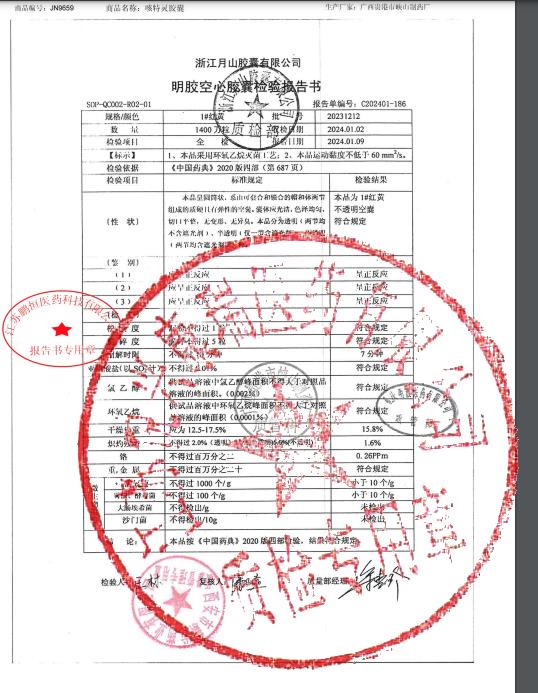 商品编号: JN9659 商品名称: 咳特灵胶囊 生产厂家: 广西贵港市峡山制药厂
浙江月山胶囊有限公司
明胶空心胶囊检验报告书
SOP-QC002-R02-01 报告单编号: C202401-186
规格/颜色 1#红黄 批 号 20231212
数 量 1400万粒 检日期 2024.01.02
检验项目 全 检 日期 2024.01.09
【标示】 1、本品采用环氧乙烷灭菌工艺; 2、本品运动黏度不低于60 mm²/s。
检验依据 《中国药典》2020版四部(第687页)
检验项目 标准规定 检验结果
本品呈圆筒状,系由可套合和锁合的帽和体两节 本品为 1#红黄
组成的质硬且有弹性的空囊。囊体应光洁,色泽均匀, 不透明空囊
(性 状) 切口平整,无变形、无异臭。本品分为透明(两节均 符合规定
不含遮光剂)、半透明(仅一节含遮光剂)
(两节均含遮光剂
(鉴 别)
(1) 应呈正反应 呈正反应
(2) 应呈正反应 呈正反应
(3) 应呈正反应 呈正反应
度 不得过1粒 符合规定
碎度 不得过5粒 符合规定
崩解时限 不得过 分钟 7分钟
(以SO 计) 不得过0.01% 符合规定
氯乙醇 供试品溶液中氯乙醇峰面积不得大于对照品
溶液的峰面积。(0.002%) 符合规定
环氧乙烷 供试品溶液中环氧乙烷峰面积不得大于对照
品溶液的峰面积(0.0001%) 符合规定
干燥失重 应为 12.5-17.5% 15.8%
炽灼残渣 不得过2.0%(透明) 5.0%(不透明) 1.6%
铬 不得过百万分之二 0.26PPm
重金属 不得过百万分之二十 符合规定
不得过 1000个/g 小于10个/g
不得过 100个/g 小于10个/g
大肠埃希菌 不得检出/g 未检出
沙门菌 不得检出/10g 未检出
论: 本品按《中国药典》2020版四部检验,结果符合规定
检验人: 复核人: 质量部经理:
江苏鹏恒医药科技有限公司
报告书专用章
质检部